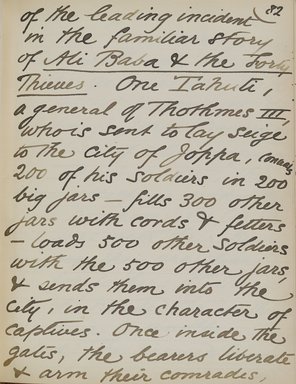 82
of the leading incident
in the familiar story
of Ali Baba & the Forty
Thieves. One Tahuti,
a general of Thothmes III,
who is sent to lay seige
to the city of Joppa, conceals
200 of his soldiers in 200
big jars — fills 300 other
jars with cords & fetters
— loads 500 other soldiers
with the 500 other jars,
& sends them into the
city, in the character of
captives. Once inside the
gates, the bearers liberate
& arm their comrades,